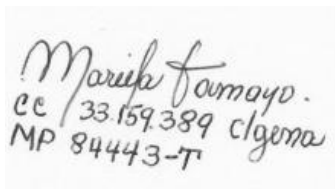 Mariela Tamayo.
CC 33.159.389 c/gena
MP 84443-T